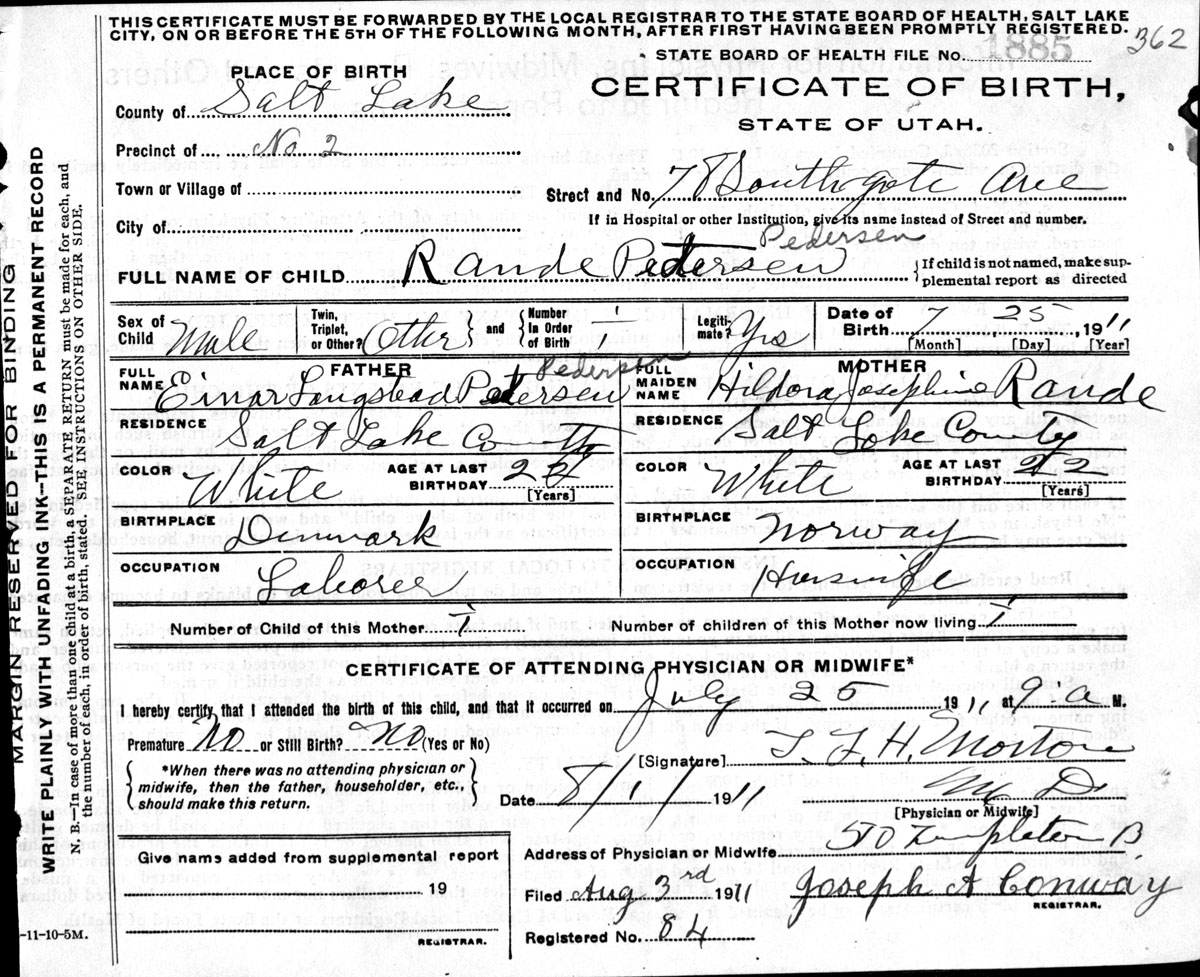 THIS CERTIFICATE MUST BE FORWARDED BY THE LOCAL REGISTRAR TO THE STATE BOARD OF HEALTH, SALT LAKE
CITY, ON OR BEFORE THE 5TH OF THE FOLLOWING MONTH, AFTER FIRST HAVING BEEN PROMPTLY REGISTERED.
362
STATE BOARD OF HEALTH FILE NO. 1885
PLACE OF BIRTH
CERTIFICATE OF BIRTH,
STATE OF UTAH.
County of Salt Lake
Precinct of No 2
Town or Village of
Street and No. 78 Southgate Ave
City of
If in Hospital or other Institution, give its name instead of Street and number.
Pedersen
FULL NAME OF CHILD Rande Petersen { If child is not named, make sup-
plemental report as directed
Sex of Child Male Twin, Triplet, or Other? Other and Number In Order of Birth 1 Legiti-mate? Yes Date of Birth 7 25 1911
[Month] [Day] [Year]
FATHER
MOTHER
Pedersen
FULL NAME Einar Langstead Petersen
FULL MAIDEN NAME Hildora Josephine Rande
RESIDENCE Salt Lake County
RESIDENCE Salt Lake County
COLOR White AGE AT LAST BIRTHDAY [Years]
COLOR White AGE AT LAST BIRTHDAY 22 [Years]
BIRTHPLACE Denmark
BIRTHPLACE Norway
OCCUPATION Laborer
OCCUPATION Housewife
Number of Child of this Mother 1 Number of children of this Mother now living 1
CERTIFICATE OF ATTENDING PHYSICIAN OR MIDWIFE*
I hereby certify, that I attended the birth of this child, and that it occurred on July 25 1911 at 9-a M.
Premature No or Still Birth? No (Yes or No)
[Signature] F. H. Morton
M D.
[Physician or Midwife]
{ *When there was no attending physician or
midwife, then the father, householder, etc.,
should make this return. }
Date 8/1/ 1911
Give name added from supplemental report
19
REGISTRAR.
Address of Physician or Midwife Templeton B
Filed Aug 3rd 1911 Joseph A Conway
REGISTRAR.
Registered No. 84
-11-10-5M.
MARGIN RESERVED FOR BINDING
WRITE PLAINLY WITH UNFADING INK—THIS IS A PERMANENT RECORD
N. B.—In case of more than one child at a birth, a SEPARATE RETURN must be made for each, and
the number of each, in order of birth, stated. SEE INSTRUCTIONS ON OTHER SIDE.